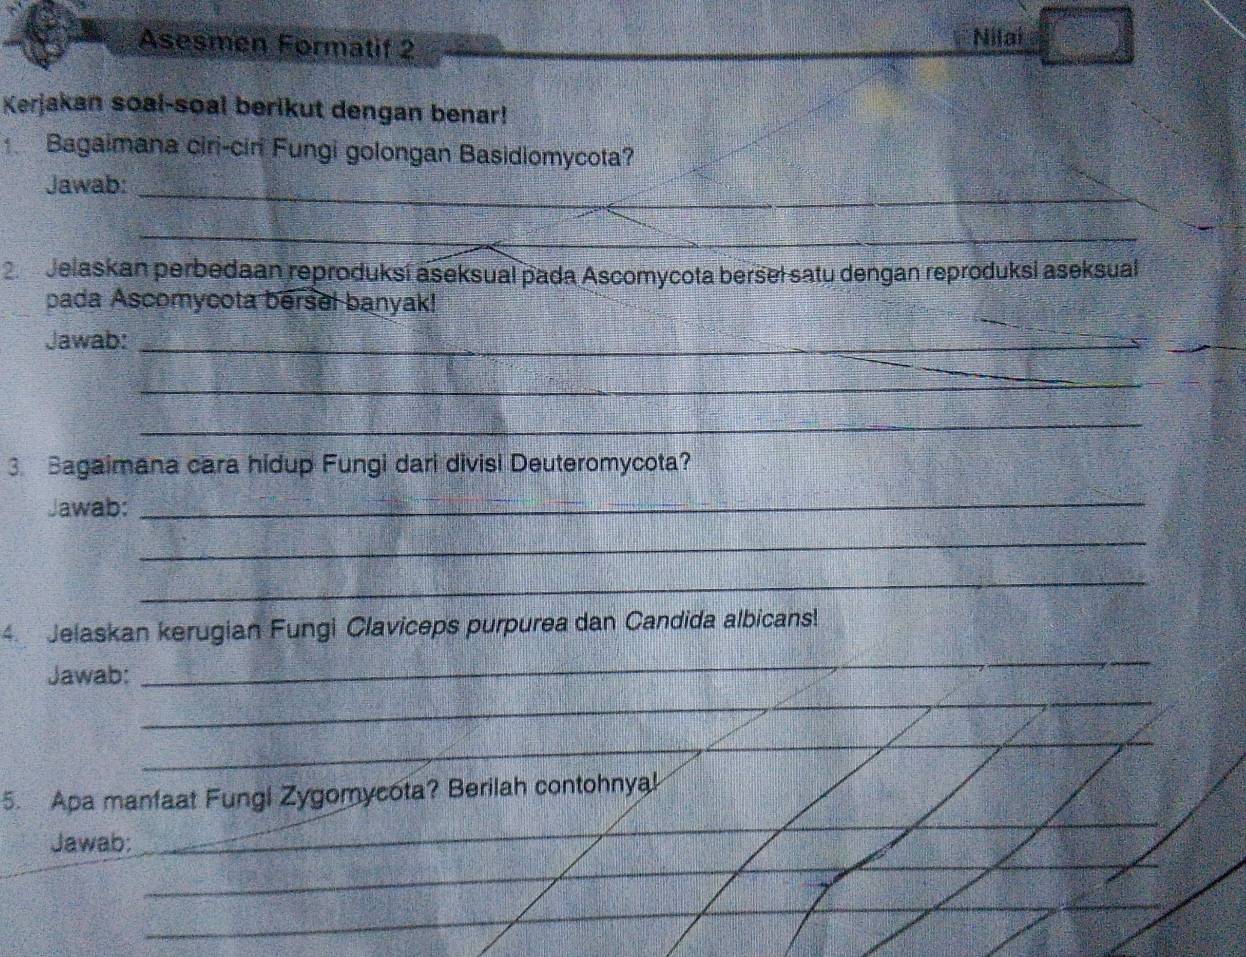 Asesmen Formatif 2
Nilai
Kerjakan soal-soal berikut dengan benar!
1. Bagaimana ciri-ciri Fungi golongan Basidiomycota?
Jawab:
2. Jelaskan perbedaan reproduksi aseksual pada Ascomycota bersel satu dengan reproduksi aseksual
pada Ascomycota bersel banyak!
Jawab:
3. Bagaimana cara hidup Fungi dari divisi Deuteromycota?
Jawab:
4. Jelaskan kerugian Fungi Claviceps purpurea dan Candida albicans!
Jawab:
5. Apa manfaat Fungi Zygomycota? Berilah contohnya!
Jawab: